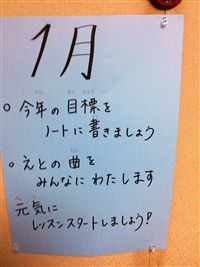 1月
○ 今年の目標を
ノートに書きましょう
○ えとの曲を
みんなにわたします
元気に
レッスンスタートしましょう!